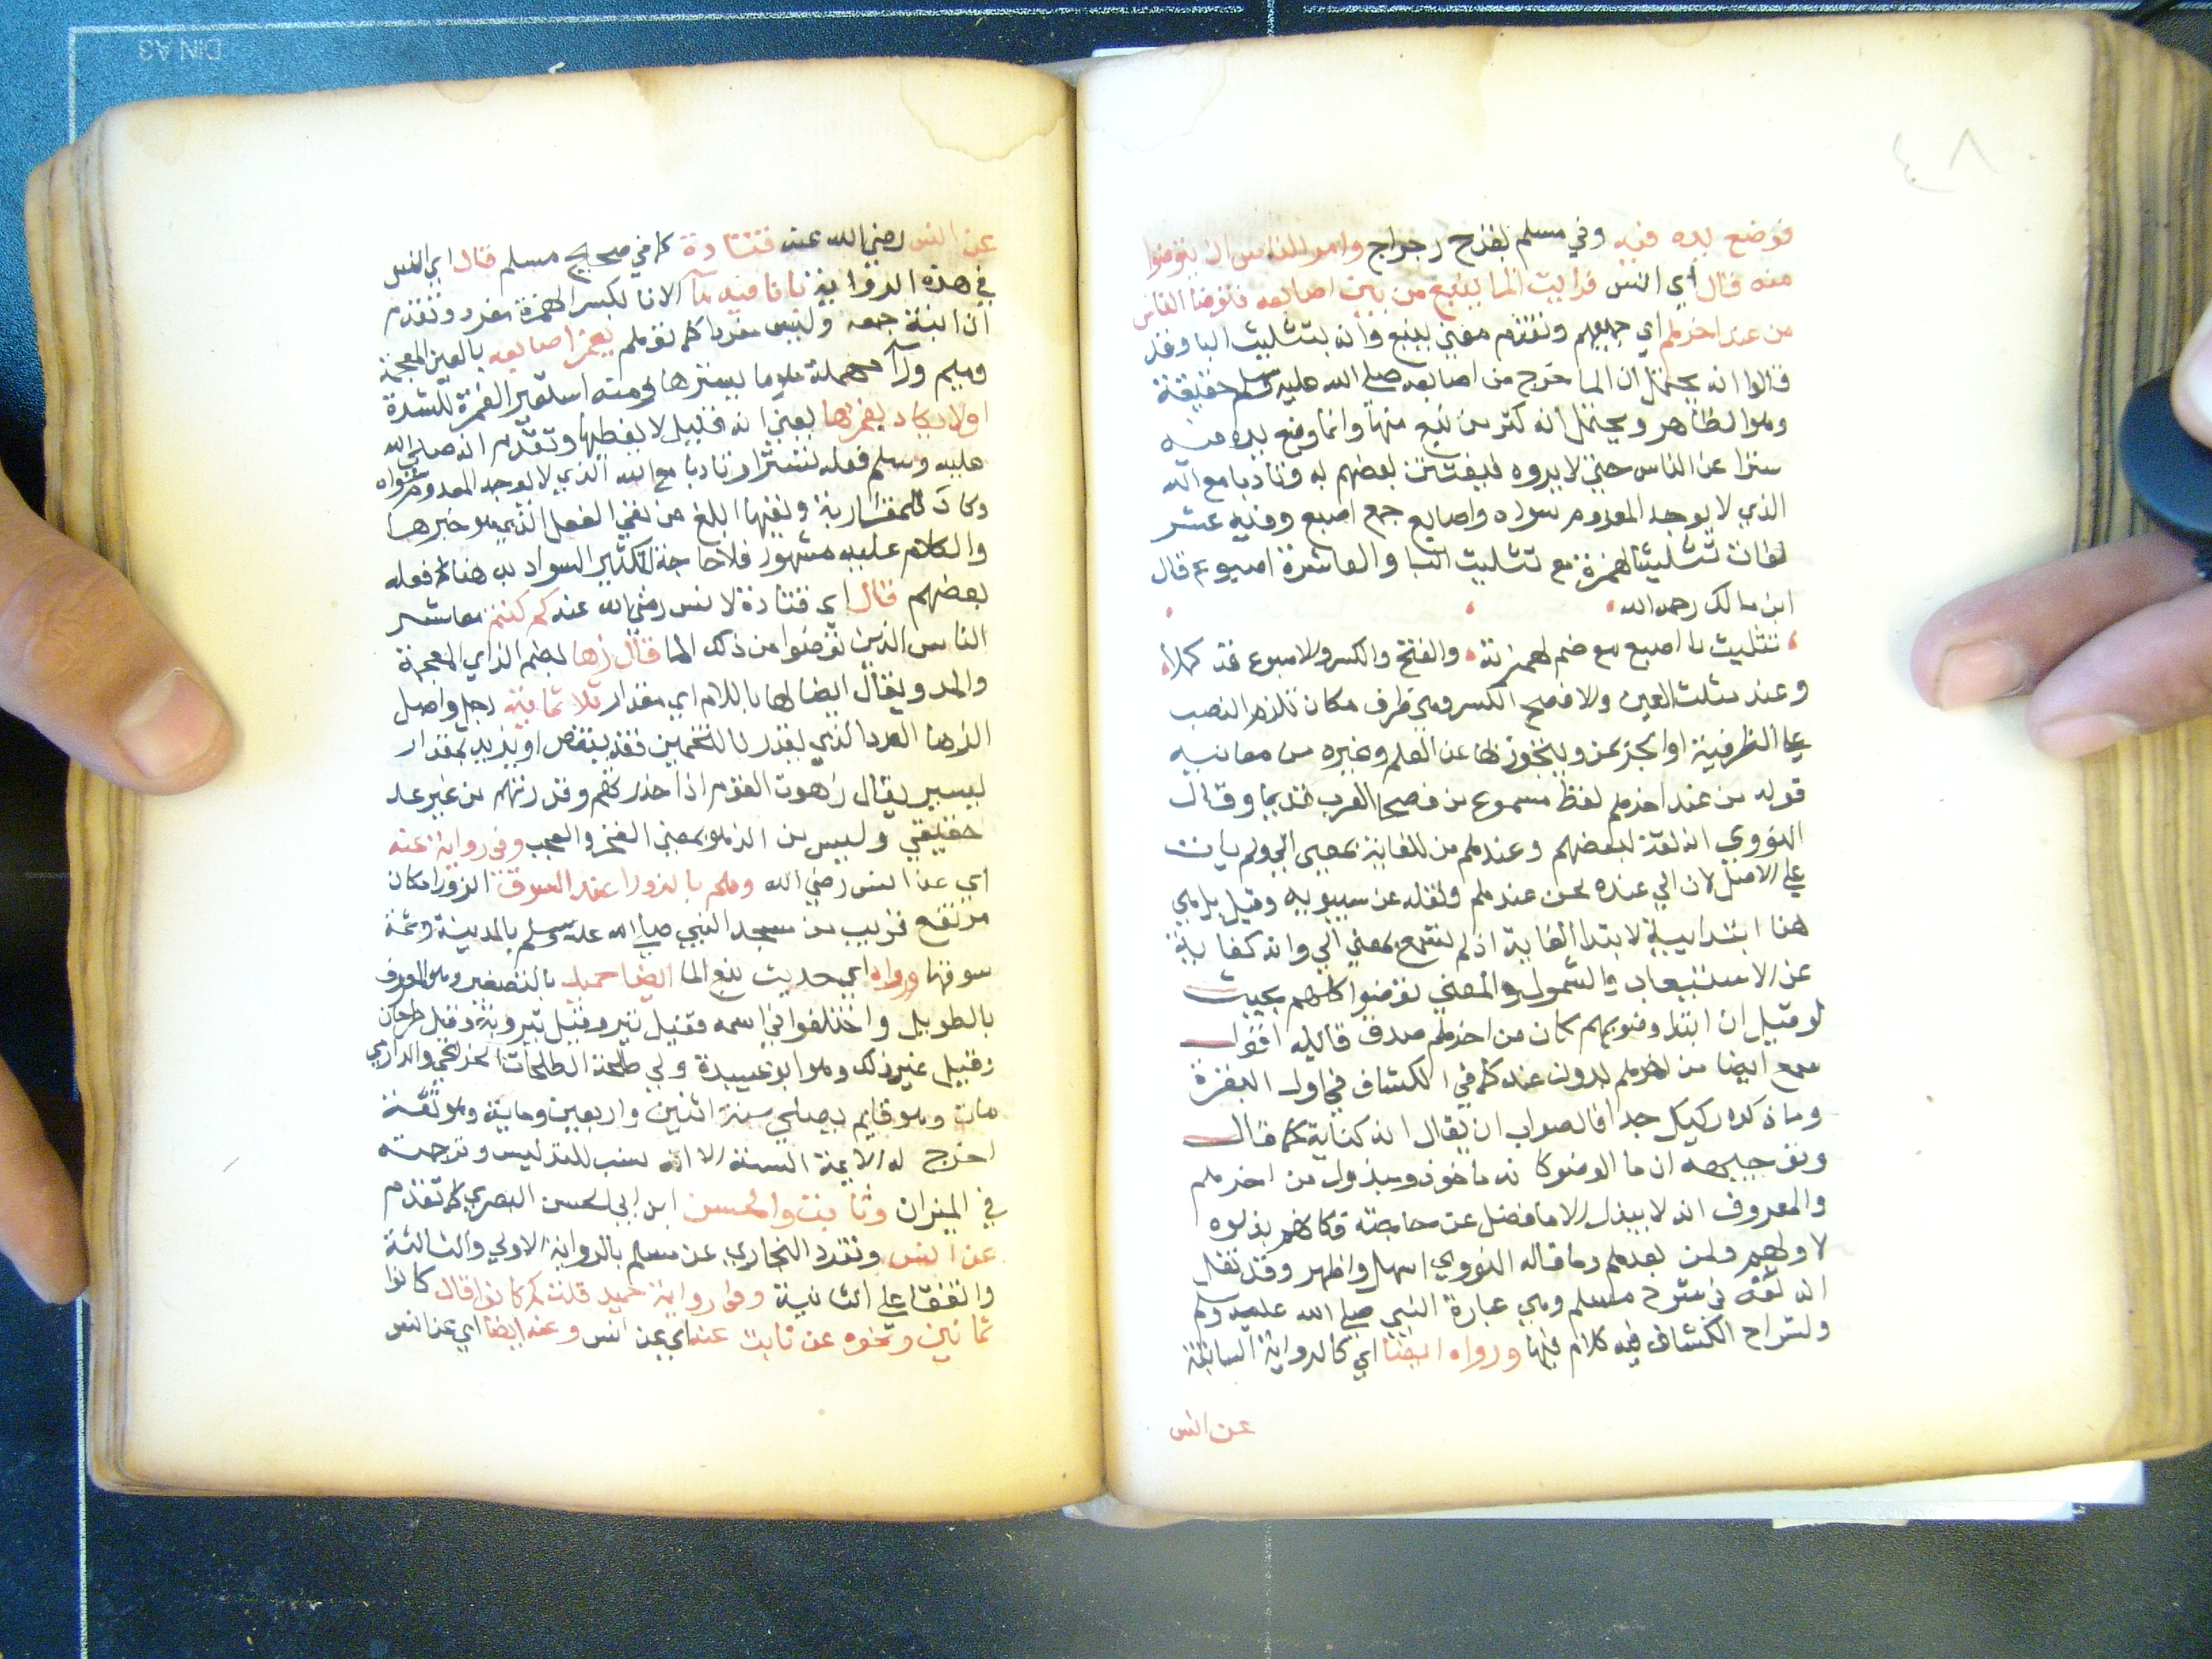 فوضع يده فيه وفي مسلم بقدح رجراج وامر الناس ان يتوضوا
منه قال اي انس فرايت الما ينبع من بين اصابعه فتوضا الناس
من عند اخرهم اي جميعهم وتقدم معني ينبع وانه بتثليث البا وقد
قالوا انه يحتمل ان الما خرج من اصابعه صلي الله عليه وسلم حقيقة
وهو الظاهر ويحتمل انه كثر من غير نبع منها وانما وضع يده فيه
سترا عن الناس حتي لا يروه فيفتتن بعضهم به وتادبا مع الله
الذي لا يوجد المعدوم سواه واصابع جمع اصبع وفيه عشر
لغات تثليث الهمزة مع تثليث البا والعاشرة اصبوع قال
ابن مالك رحمه الله
تثليث با اصبع مع ضم همزته والفتح والكسر والاصبوع قد كملا
وعند مثلث العين والافصح الكسر وهي ظرف مكان تلزم النصب
علي الظرفية او الجر بمن ويتجوز بها عن العلم وغيره من معانيه
قوله من عند اخرهم لفظ مسموع من فصحا العرب قديما وقال
النووي انه لغة لبعضهم وعندهم من للغاية بمعني الي ولم يات
علي الاصل لان الي عنده لحن عندهم ونقله عن سيبويه وقيل بل هي
هنا ابتدايية لابتدا الغاية اذ لم تسمع بمعني الي وانه كناية
عن الاستيعاب والشمول والمعني توضوا كلهم بحيث
لو قيل ان ابتدا وضويهم كان من اخرهم صدق قايله اقول
سمع ايضا من اخرهم بدون عند كما في الكشاف في اول البقرة
وما ذكره ركيك جدا فالصواب ان يقال انه كناية كما قال
وتوجيهه ان ما الوضو كانه ماخوذ ومبذول من اخرهم
والمعروف انه لا يبذل الا ما فضل عن حاجته فكانهم بذلوه
لاولهم ولمن بعدهم وما قاله النووي اسهل واظهر وقد نقل
انه لغة في شرح مسلم وهي عبارة النبي صلي الله عليه وسلم
ولشراح الكشاف فيه كلام فيها ورواه ايضا اي كالرواية السابقة
عن انس
عن انس رضي الله عنه قتادة كما في صحيح مسلم قال اي انس
في هذه الرواية باناء فيه ماء الانا بكسر الهمزة مفرد وتقدم
ان انية جمعه وليس مفردا كما توهم يغمر اصابعه بالغين المعجمة
وميم وراء مهملة علوها يسترها ومنه استعير الغمرة للشدة
اولا يكاد يغمرها يعني انه قليل لا يغطيها وتقدم انه صلي الله
عليه وسلم فعله تسترا وتادبا مع الله الذي لا يوجد المعدوم سواه
وكاد للمقاربة ونفيها ابلغ من نفي الفعل الذي هو خبرها
والكلام عليه مشهور فلا حاجة لتكثير السواد به هنا كما فعله
بعضهم قال اي قتادة لانس رضي الله عنه كم كنتم معاشر
الناس الذين توضوا من ذلك الما قال زها بضم الزاي المعجمة
والمد ويقال ايضا لها باللام اي مقدار ثلاثماية رجل واصل
الزها العدد الذي يقدر بالتخمين فقد ينقص او يزيد بمقدار
يسير يقال زهوت القوم اذا حذرتهم وقدرتهم من غير عد
حقيقي وليس من الزهو بمعني الفخر والعجب وفي رواية عنه
اي عن انس رضي الله وهم بالزورا عند السوق الزورا مكان
مرتفع قريب من مسجد النبي صلي الله عليه وسلم بالمدينة وثمة
سوقها ورواه اي حديث نبع الما ايضا حميد بالتصغير وهو المعروف
بالطويل واختلفوا في اسمه فقيل تير وقيل تيرويه وقيل طرخان
وقيل غير ذلك وهو ابو عبيدة ولي طلحة الطلحات الخزاعي والدارمي
مات وهو قايم يصلي سنة اثنين واربعين وماية وهو ثقة
اخرج له الايمة الستة الا انه نسب للتدليس وترجمته
في الميزان وثابت والحسن ابن ابي الحسن البصري كما تقدم
عن انس وتفرد البخاري عن مسلم بالرواية الاولي والثالثة
واتفقا علي الثانية وفي رواية حميد قلت كم كانوا قال كانوا
ثمانين ونحوه عن ثابت عنه اي عن انس وعنه ايضا اي عن انس